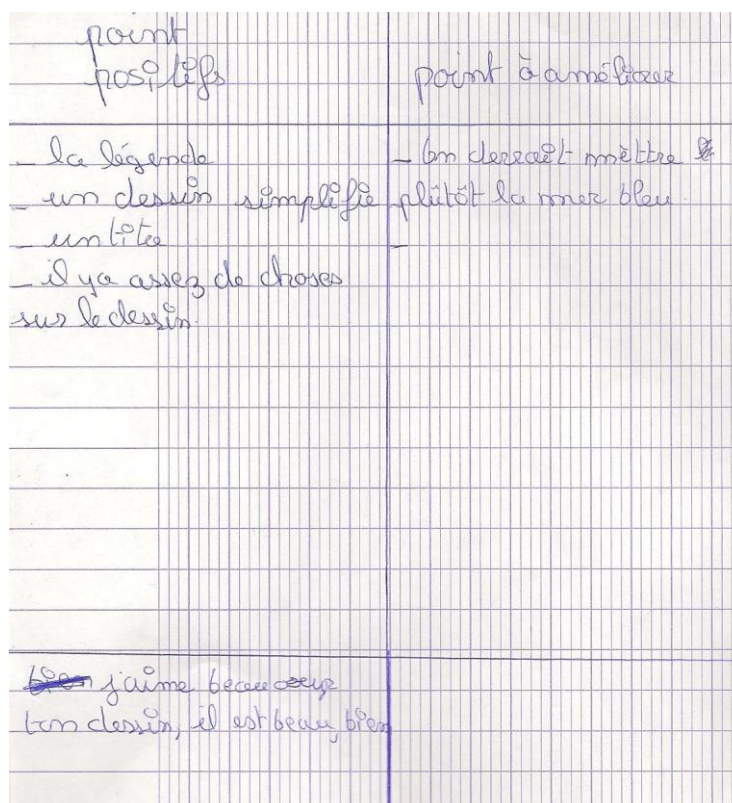 point
positifs
point à améliorer
- la légende
- un dessin simplifie
- un titre
- il ya assez de choses
sur le dessin.
- On devrait mettre
plûtôt la mer bleu.
-
j'aime beaucoup
ton dessin, il est beau, bien